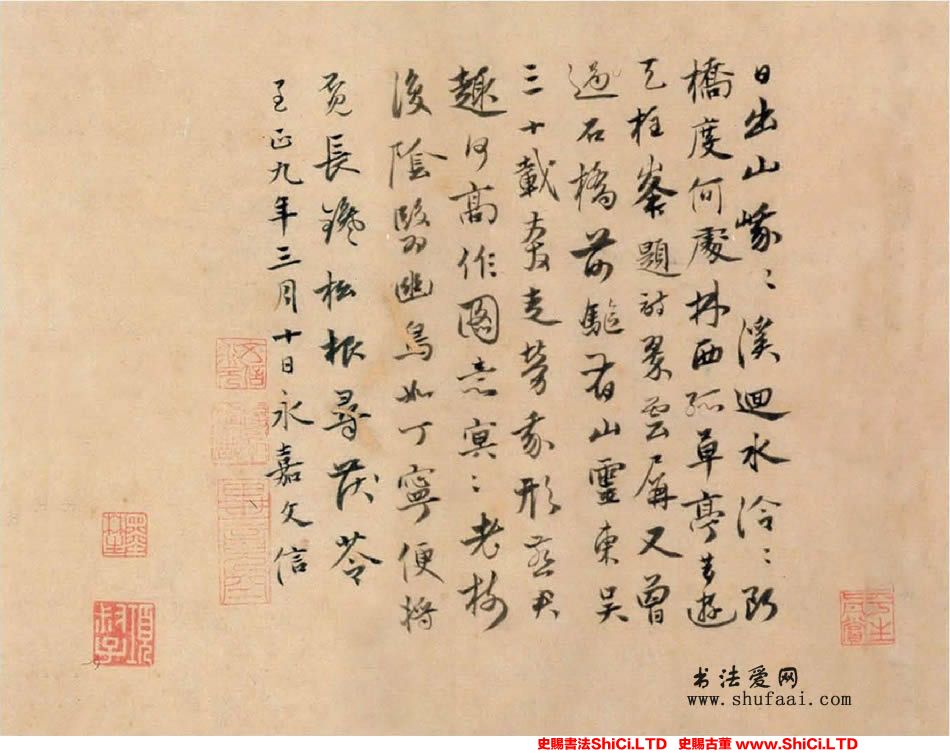 日出山蒙〻溪迴水泠〻断
橋度何處林西孤草亭昔遊
天柱峯題詩翠雲屏又曾
過石橋前驅有山靈東吳
三十載奔走勞我形燕
趣何高作圖意冥〻老樹
後陰翳幽鳥如丁寧便將
負長鑱松根尋茯苓
至正九年三月十日永嘉文信
項叔子
书法爱网
www.shufaai.com
史賜書法ShiCi.LTD 史賜古董 www.ShiCi.LTD